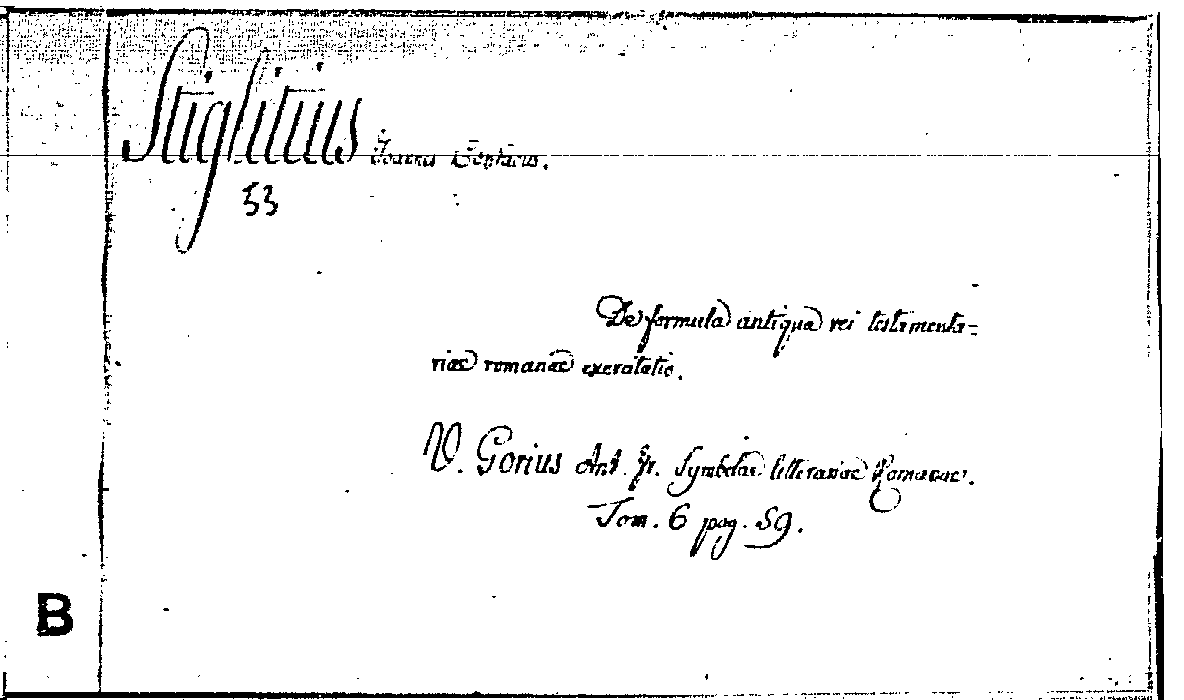 Stiglitius Joannis
53
De formula antiqua rei testamenta=
riae romanae exercitatio.
V. Gorius Ant. Fr. Symbolae litterariae Romanae.
Tom. 6 pag. 59.
B